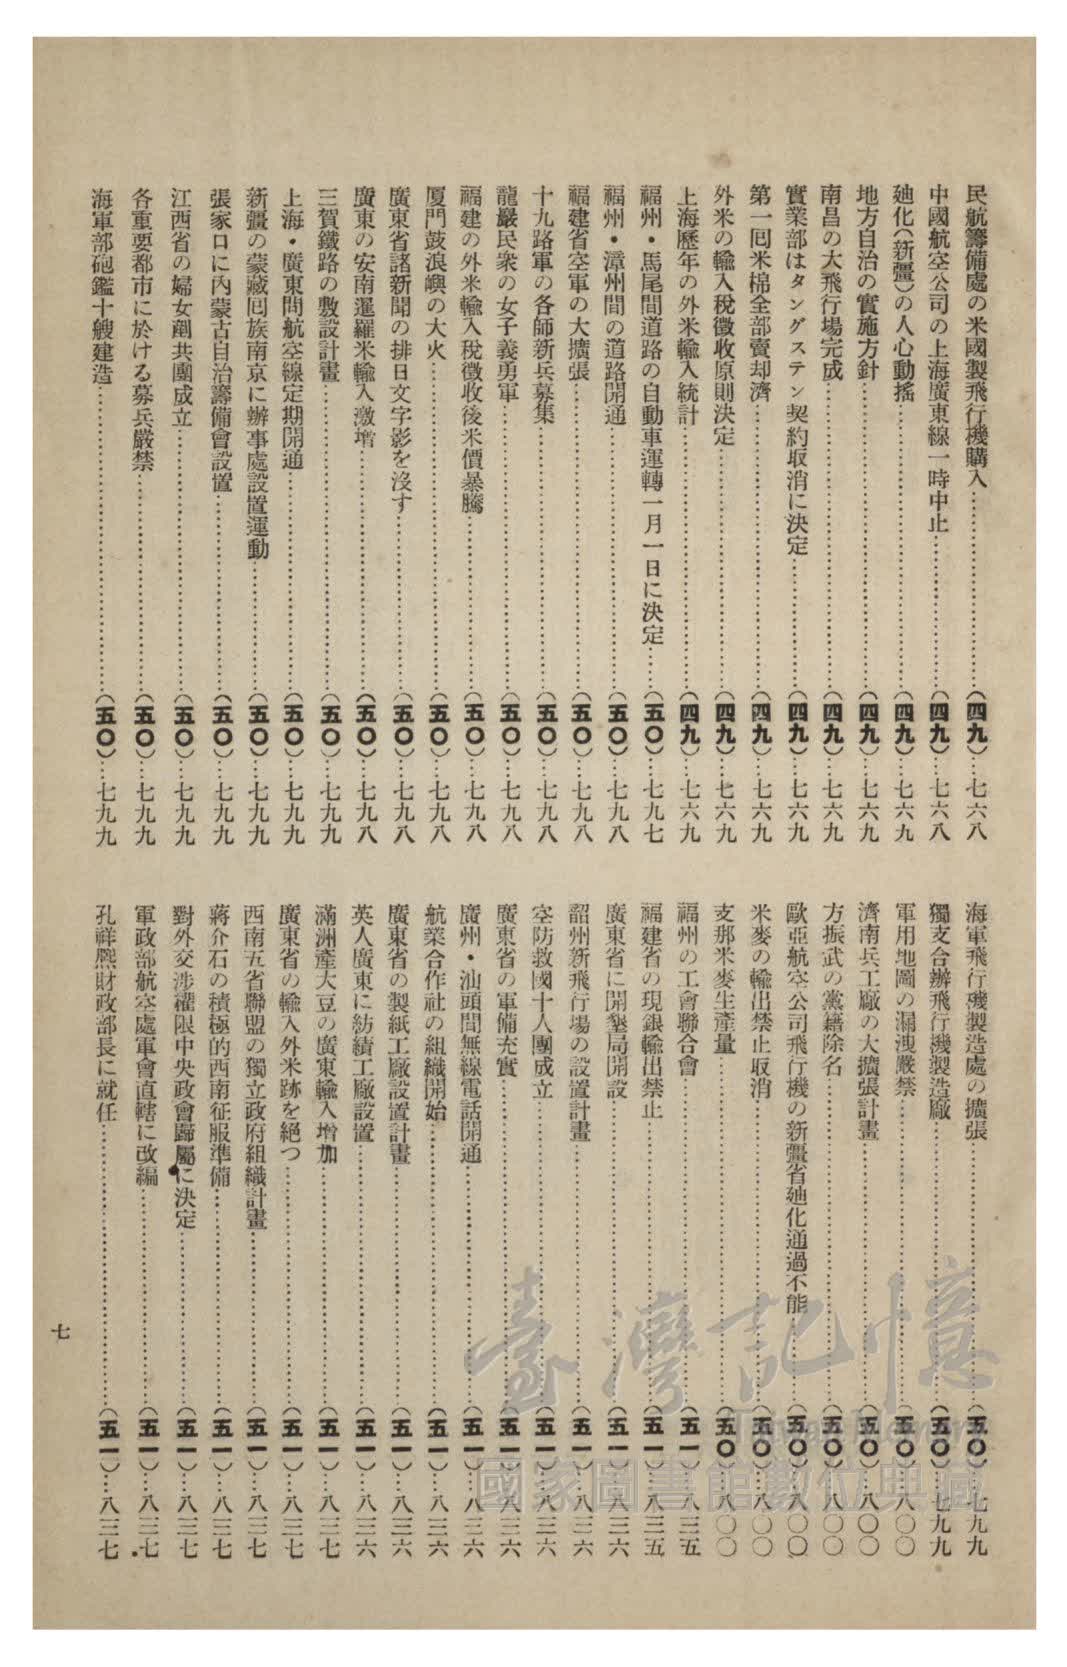 民航籌備處の米國製飛行機購入……(四九)…七六八
中國航空公司の上海廣東線一時中止……(四九)…七六八
廸化(新疆)の人心動搖……(四九)…七六九
地方自治の實施方針……(四九)…七六九
南昌の大飛行場完成……(四九)…七六九
實業部はタングステン契約取消に決定……(四九)…七六九
第一囘米棉全部賣却濟……(四九)…七六九
外米の輸入稅徵收原則決定……(四九)…七六九
上海歷年の外米輸入統計……(四九)…七六九
福州・馬尾間道路の自動車運轉一月一日に決定……(五〇)…七九七
福州・漳州間の道路開通……(五〇)…七九八
福建省空軍の大擴張……(五〇)…七九八
十九路軍の各師新兵募集……(五〇)…七九八
龍巖民衆の女子義勇軍……(五〇)…七九八
福建の外米輸入稅徵收後米價暴騰……(五〇)…七九八
厦門鼓浪嶼の大火……(五〇)…七九八
廣東省諸新聞の排日文字影を沒す……(五〇)…七九八
廣東の安南暹羅米輸入激增……(五〇)…七九八
三賀鐵路の敷設計畫……(五〇)…七九九
上海・廣東間航空線定期開通……(五〇)…七九九
新疆の蒙藏囘族南京に辦事處設置運動……(五〇)…七九九
張家口に內蒙古自治籌備會設置……(五〇)…七九九
江西省の婦女剷共團成立……(五〇)…七九九
各重要都市に於ける募兵嚴禁……(五〇)…七九九
海軍部砲艦十艘建造……(五〇)…七九九
海軍飛行機製造處の擴張……(五〇)…七九九
獨支合辦飛行機製造廠……(五〇)…七九九
軍用地圖の漏洩嚴禁……(五〇)…八〇〇
濟南兵工廠の大擴張計畫……(五〇)…八〇〇
方振武の黨籍除名……(五〇)…八〇〇
歐亞航空公司飛行機の新疆省廸化通過不能……(五〇)…八〇〇
米麥の輸出禁止取消……(五〇)…八〇〇
支那米麥生產量……(五〇)…八〇〇
福州の工會聯合會……(五一)…八三五
福建省の現銀輸出禁止……(五一)…八三五
廣東省に開墾局開設……(五一)…八三六
韶州新飛行場の設置計畫……(五一)…八三六
空防救國十人團成立……(五一)…八三六
廣東省の軍備充實……(五一)…八三六
廣州・汕頭間無線電話開通……(五一)…八三六
航業合作社の組織開始……(五一)…八三六
廣東省の製紙工廠設置計畫……(五一)…八三六
英人廣東に紡績工廠設置……(五一)…八三六
滿洲產大豆の廣東輸入增加……(五一)…八三七
廣東省の輸入外米跡を絕つ……(五一)…八三七
西南五省聯盟の獨立政府組織計畫……(五一)…八三七
蔣介石の積極的西南征服準備……(五一)…八三七
對外交涉權限中央政會歸屬に決定……(五一)…八三七
軍政部航空處軍會直轄に改編……(五一)…八三七
孔祥熙財政部長に就任……(五一)…八三七
七
臺灣記憶
Taiwan Memory
國家圖書館數位典藏